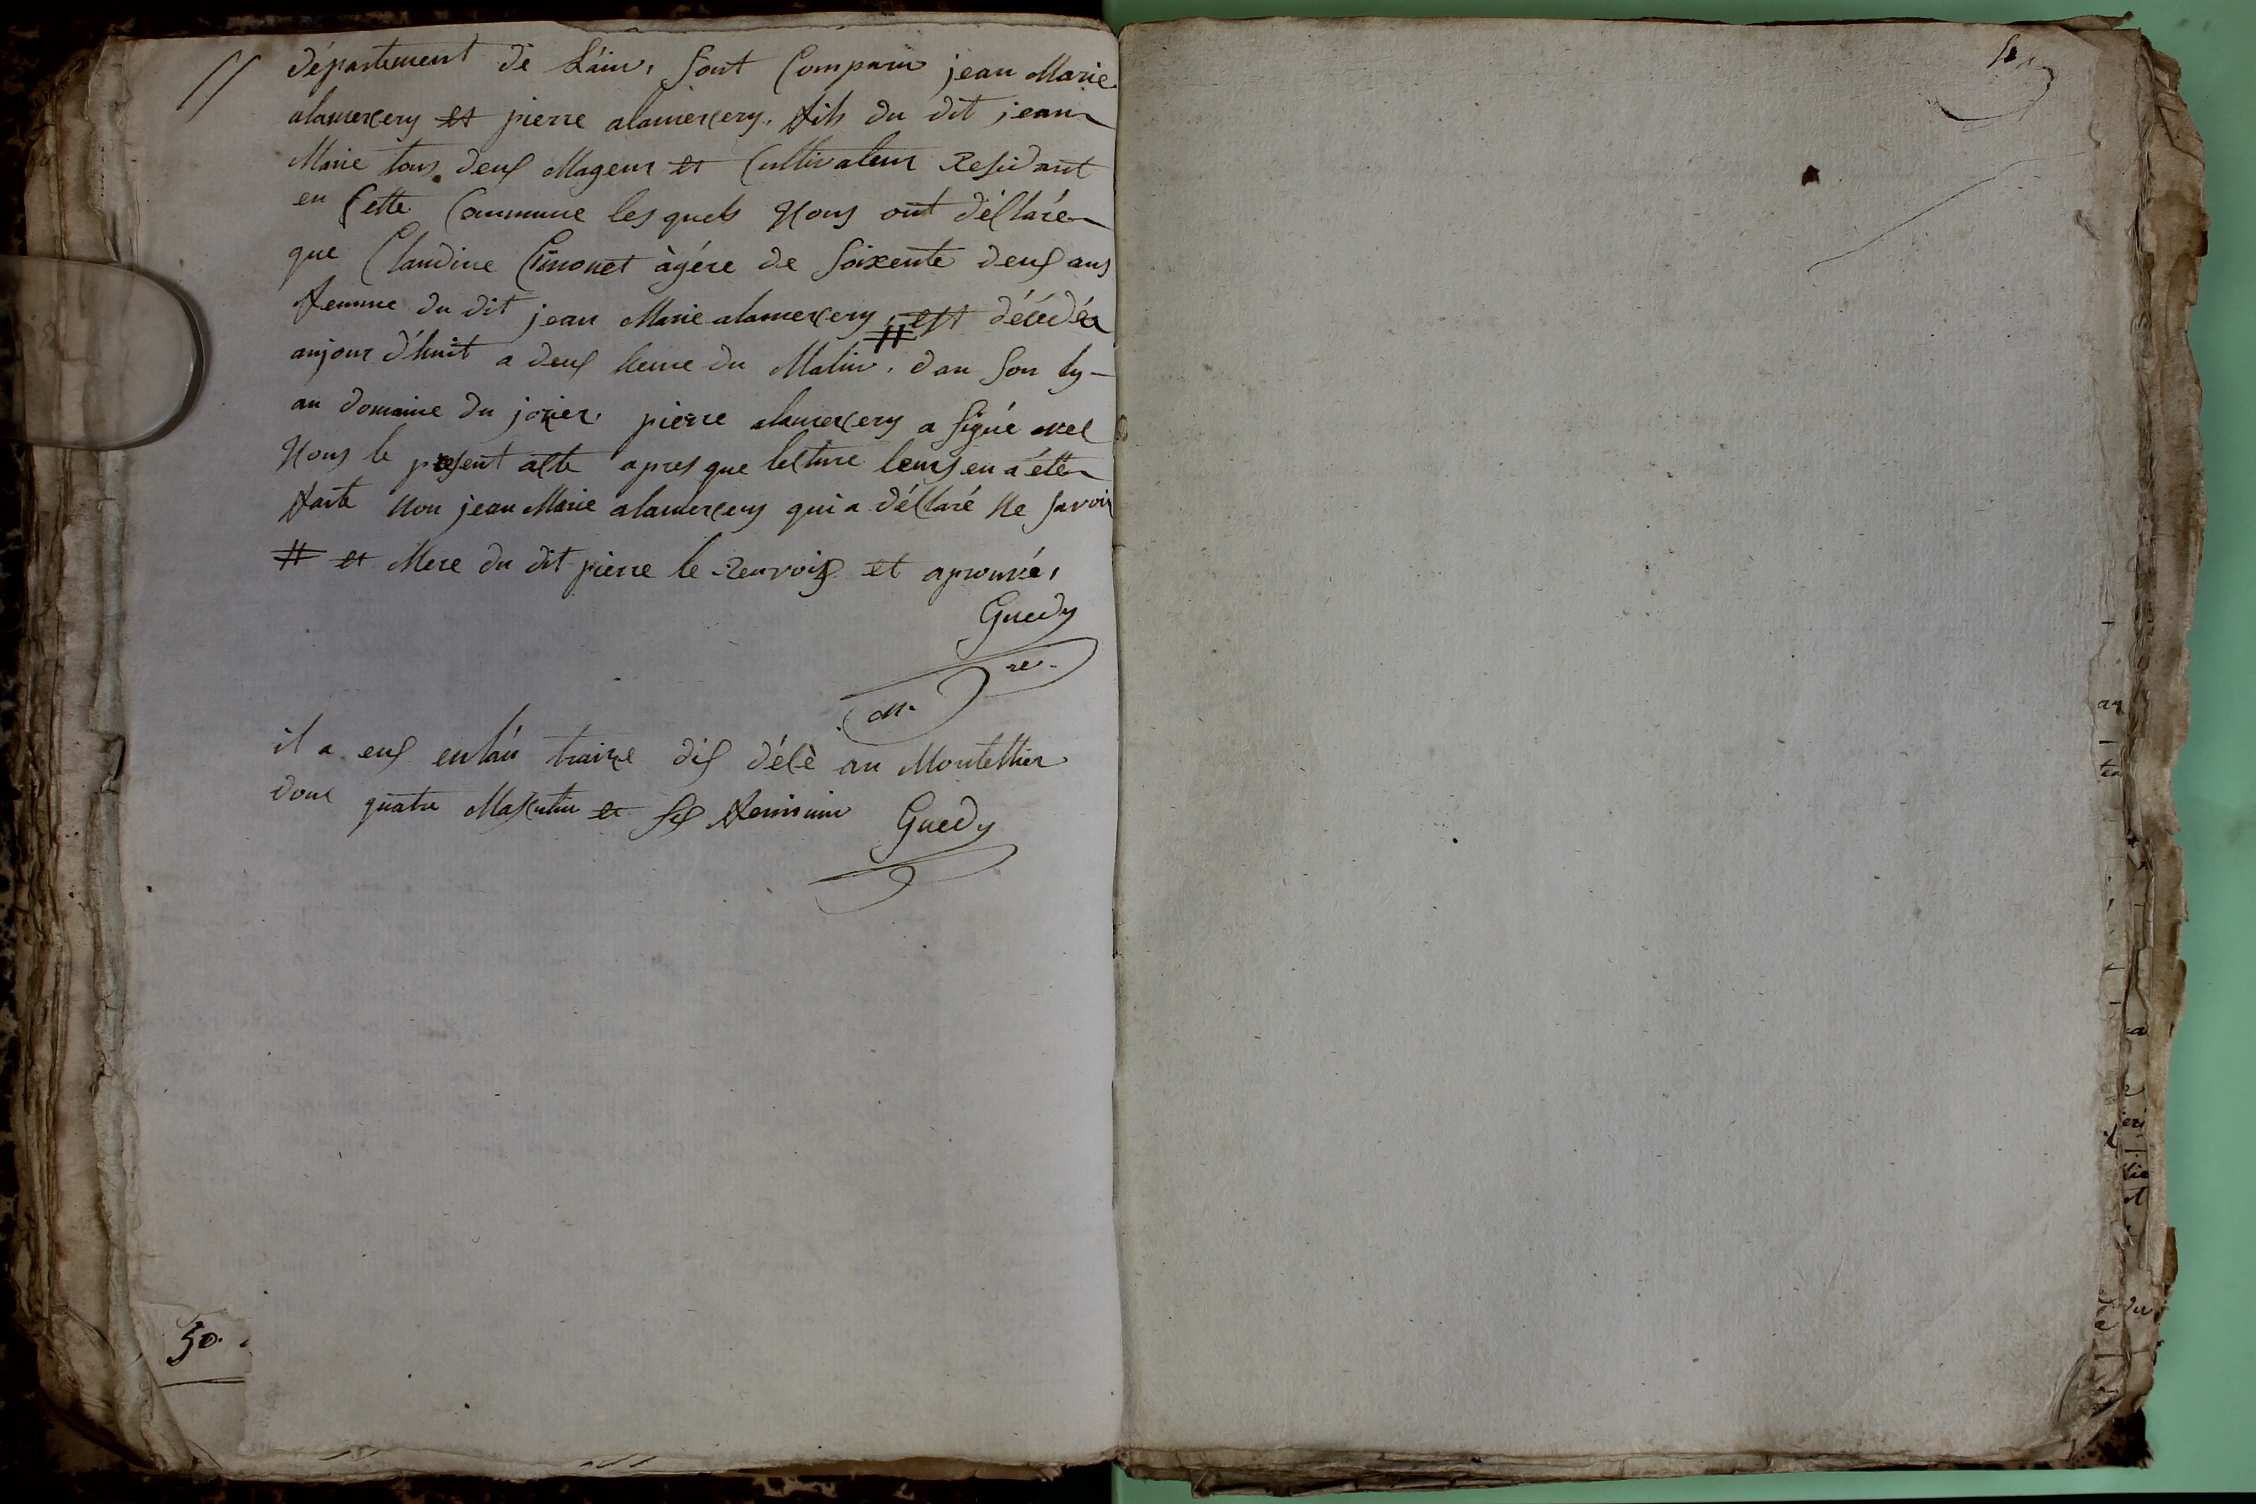 département de L'ain, sont Comparu jean Marie
alamercery et pierre alamercery, fils du dit jean
Marie tous deux Mageur et Cultivateur Residant
en Cette Commune les quels Nous ont déClaré
que Claudine Cimonet àgére de soixente deux ans
femme du dit jean Marie alamercery # est décédéé
aujour d'huit a deux heure du Matin, dan son ly
au domaine du jorier pierre alamercery a signé avec
Nous le present acte apres que lecture leurs en a été
faite Non jean Marie alamercery qui a déClaré Ne savoir
# et Mere du dit pierre le Renvoiz et aprouvé,
Guedy
M. re.
il a eux en l'an traize dix décè au Montellier
donc quatre Masculin et six feminin Guedy
50